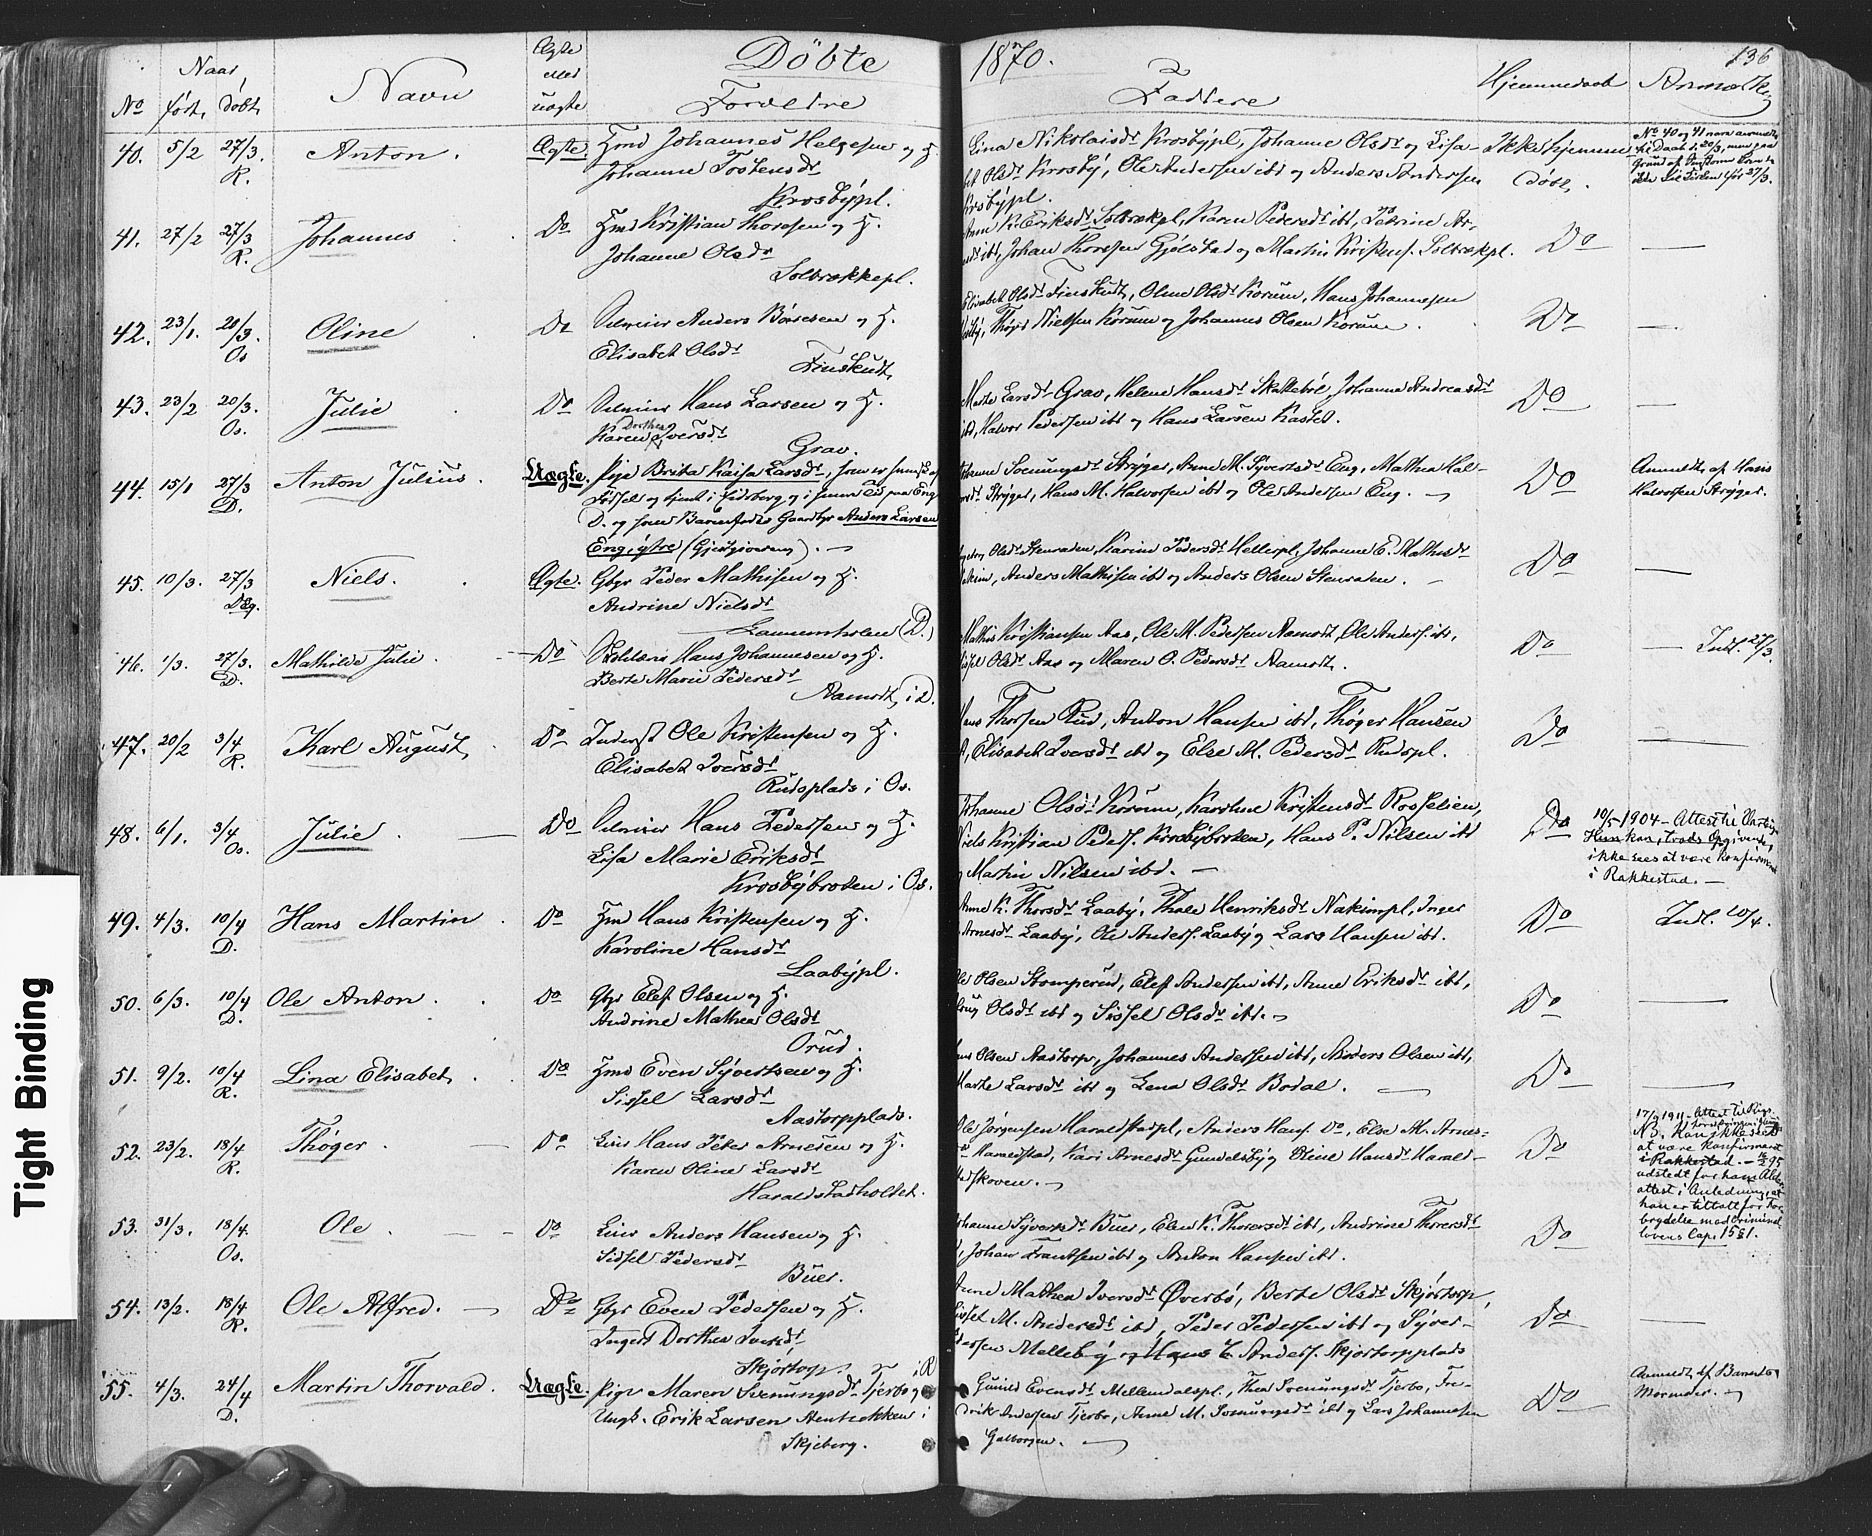 Døbte 1870. 136
Naar
Ægte
eller
uægte
No født, døbt, Navn Forældre Faddere Hjemmedøbt Anmærk.
40. 5/2 27/3. R. Anton. Ægte. Hmd Johannes Helgesen og H.
Johanne Tostensdt
Krosbÿpl.
Lina Nikolaisdt Krosbÿpl, Johanne Olsdt og Lisa-
bet Olsdt Krosbÿ, Ole Andersen ibt og Anders Andersen
Krosbÿpl.
Ikke hjemme
døbt.
No 40 og 41 vare anmeldte
til Daab d. 20/3, men paa
Grund af
27/3.
41. 27/2 27/3 R. Johannes Do Hmd Kristian Thoresen og H.
Johanne Olsdt
Solbrækkepl.
Eriksdt Solbrækpl, Karen Pedersdt ibt, Petrine Ar-
ibt, Johan Thoresen Gjølstad og Martin Kristens. Solbrækpl.
Do —
42. 23/1. 20/3. Os Oline Do Selveier Anders Børresen og H.
Elisabet Olsdt
Finskudt,
Elisabet Olsdt Finskudt, Oline Olsdt Korum, Hans Johannesen
Thøger Nielsen Korum og Johannes Olsen Korum.
Do —
43. 23/2 20/3. Os. Julie Do Selveier Hans Larsen og H.
Dorthea
Karen Iversdt
Grav.
Marte Larsdt Grav, Helene Hansdt Skattebøl, Johanne Andreasdt
ibt, Halvor Pedersen ibt og Hans Larsen Kastet.
Do —
44. 15/1 27/3 D. Anton Julius. Uægte. Pige Brita Kaisa Larsdt, som er
og tjent i Eidsberg og i senere Tid paa Eng
D. og som Barnefader Gaardbr Anders Larsen
Eng, ÿtre (Gjestgiveren). —
Svenungsdt Strÿger, Anne M. Sÿvertsdt Eng, Mathea Hal-
Strÿger, Hans M. Halvorsen ibt og Ole Andersen Eng. —
Do
Anmeldt af Hans
Halvorsen Strÿger.
45. 10/3. 27/3 Deg. Niels. Ægte. Gbr Peder Mathisen og H.
Andrine Nielsdt
(D.)
Olsdt Stenraden, Karine Pedersdt Hellerpl, Johanne E. Mathisdt
Anders Mathisen ibt og Anders Olsen Stenraden. —
Do —
46. 1/3. 27/3. D. Mathilde Julie. Do Hans Johannesen og H.
Berte Marie Pedersdt
Aamodt, i D.
Mathis Kristiansen Aas, Ole M. Pedersen Aamodt, Ole Anders. ibt,
Sissel Olsdt Aas og Maren O. Pedersdt Aamodt.
Do — Indl. 27/3.
47. 20/2 3/4 R. Karl August, Do Inderst Ole Kristensen og H.
Elisabet Iversdt
Rudsplads i Os.
Hans Thorsen Rud, Anton Hansen ibt, Thøger Hansen
Elisabet Iversdt ibt og Else M. Pedersdt Rudspl.
Do —
48. 6/1. 3/4 Os. Julie. — Do Selveier Hans Pedersen og H.
Lisa Marie Eriksdt
Krosbÿbroten i Os.
Johanne Olsdt Korum, Karoline Kristensdt Rosselien,
Niels Kristian Peders. Krosbÿbroten, Hans P. Nilsen ibt
og Martin Nilsen ibt. —
Do
10/5-1904 - Attest til
Hun kan, trods Opgivende,
ikke sees at være konfirmeret
i Rakkestad. —
49. 4/3. 10/4 D. Hans Martin. Do Hmd Hans Kristensen og H.
Karoline Hansdt
Laabÿpl.
Anne K. Thorsdt Laabÿ, Thale Henriksdt Nakimpl, Inger
Arnesdt Laabÿ, Ole Anders. Laabÿ og Lars Hansen ibt.
Do Indl. 10/4.
50. 6/3. 10/4 D. Ole Anton. Do Gbr Elef Olsen og H.
Andrine Mathea Olsdt
Orud.
Ole Olsen Stomperud, Elef Andersen ibt, Anne Eriksdt ibt,
Olsdt ibt og Sissel Olsdt ibt. —
Do —
51. 9/2. 10/4 R. Lina Elisabet, Do Hmd Even Sÿvertsen og H.
Sissel Larsdt
Aastorpplads.
Olsen Aastorp, Johannes Andersen ibt, Anders Olsen ibt,
Marte Larsdt ibt og Lena Olsdt Bodal. —
Do —
52. 23/2. 18/4 R. Thøger. — Do Leier Hans Peter Arnesen og H.
Karen Oline Larsdt
Haraldstadholtet.
Ole Jørgensen Haraldstadpl, Anders Hans. Do, Else M. Arnes-
dt Haraldstad, Kari Arnesdt Gundelsbÿ og Oline Hansdt Harald-
stadskoven. —
Do
17/9 1911 - Attest til
NB. Kan ikke sees
at være konfirmeret
i Rakkestad. —
udstedt for ham
attest i Anledning, at
han er tiltalt for For-
brydelse mod Criminal
lovens Cap. 15 § 1.
53. 31/3. 18/4. Os. Ole. — Do Leier Anders Hansen og H.
Sissel Pedersdt
Buer.
Johanne Sÿversdt Buer, Elen K. Thorersdt ibt, Andrine Thorersdt
Johan Frantsen ibt og Anton Hansen ibt.
Do
54. 13/2. 18/4 R. Ole Alfred. — Do Gbr Even Pedersen og H.
Ingert Dorthea Iversdt
Skjørtorp. i R
Anne Mathea Iversdt Øverbø, Berte Olsdt Skjørtorp,
Sissel M. Andersdt ibt, Peder Pedersen ibt og Sÿver
Pedersen Mellebÿ og Hans E. Anders. Skjørtorpplads
Do —
55. 4/3. 24/4 D. Martin Thorvald. Uægte. Pige Maren Svenungsdt Tjerbo og
Ungk. Erik Larsen i
Skjeberg.
Gunild Evensdt Mellemdalspl, Thea Svenungsdt Tjerbo, Fre-
drik Andersen Tjerbo, Anne M. Svenungsdt ibt og Lars Johannesen
Do
Anmeldt af Barnets
Mormoder. —
Tight Binding